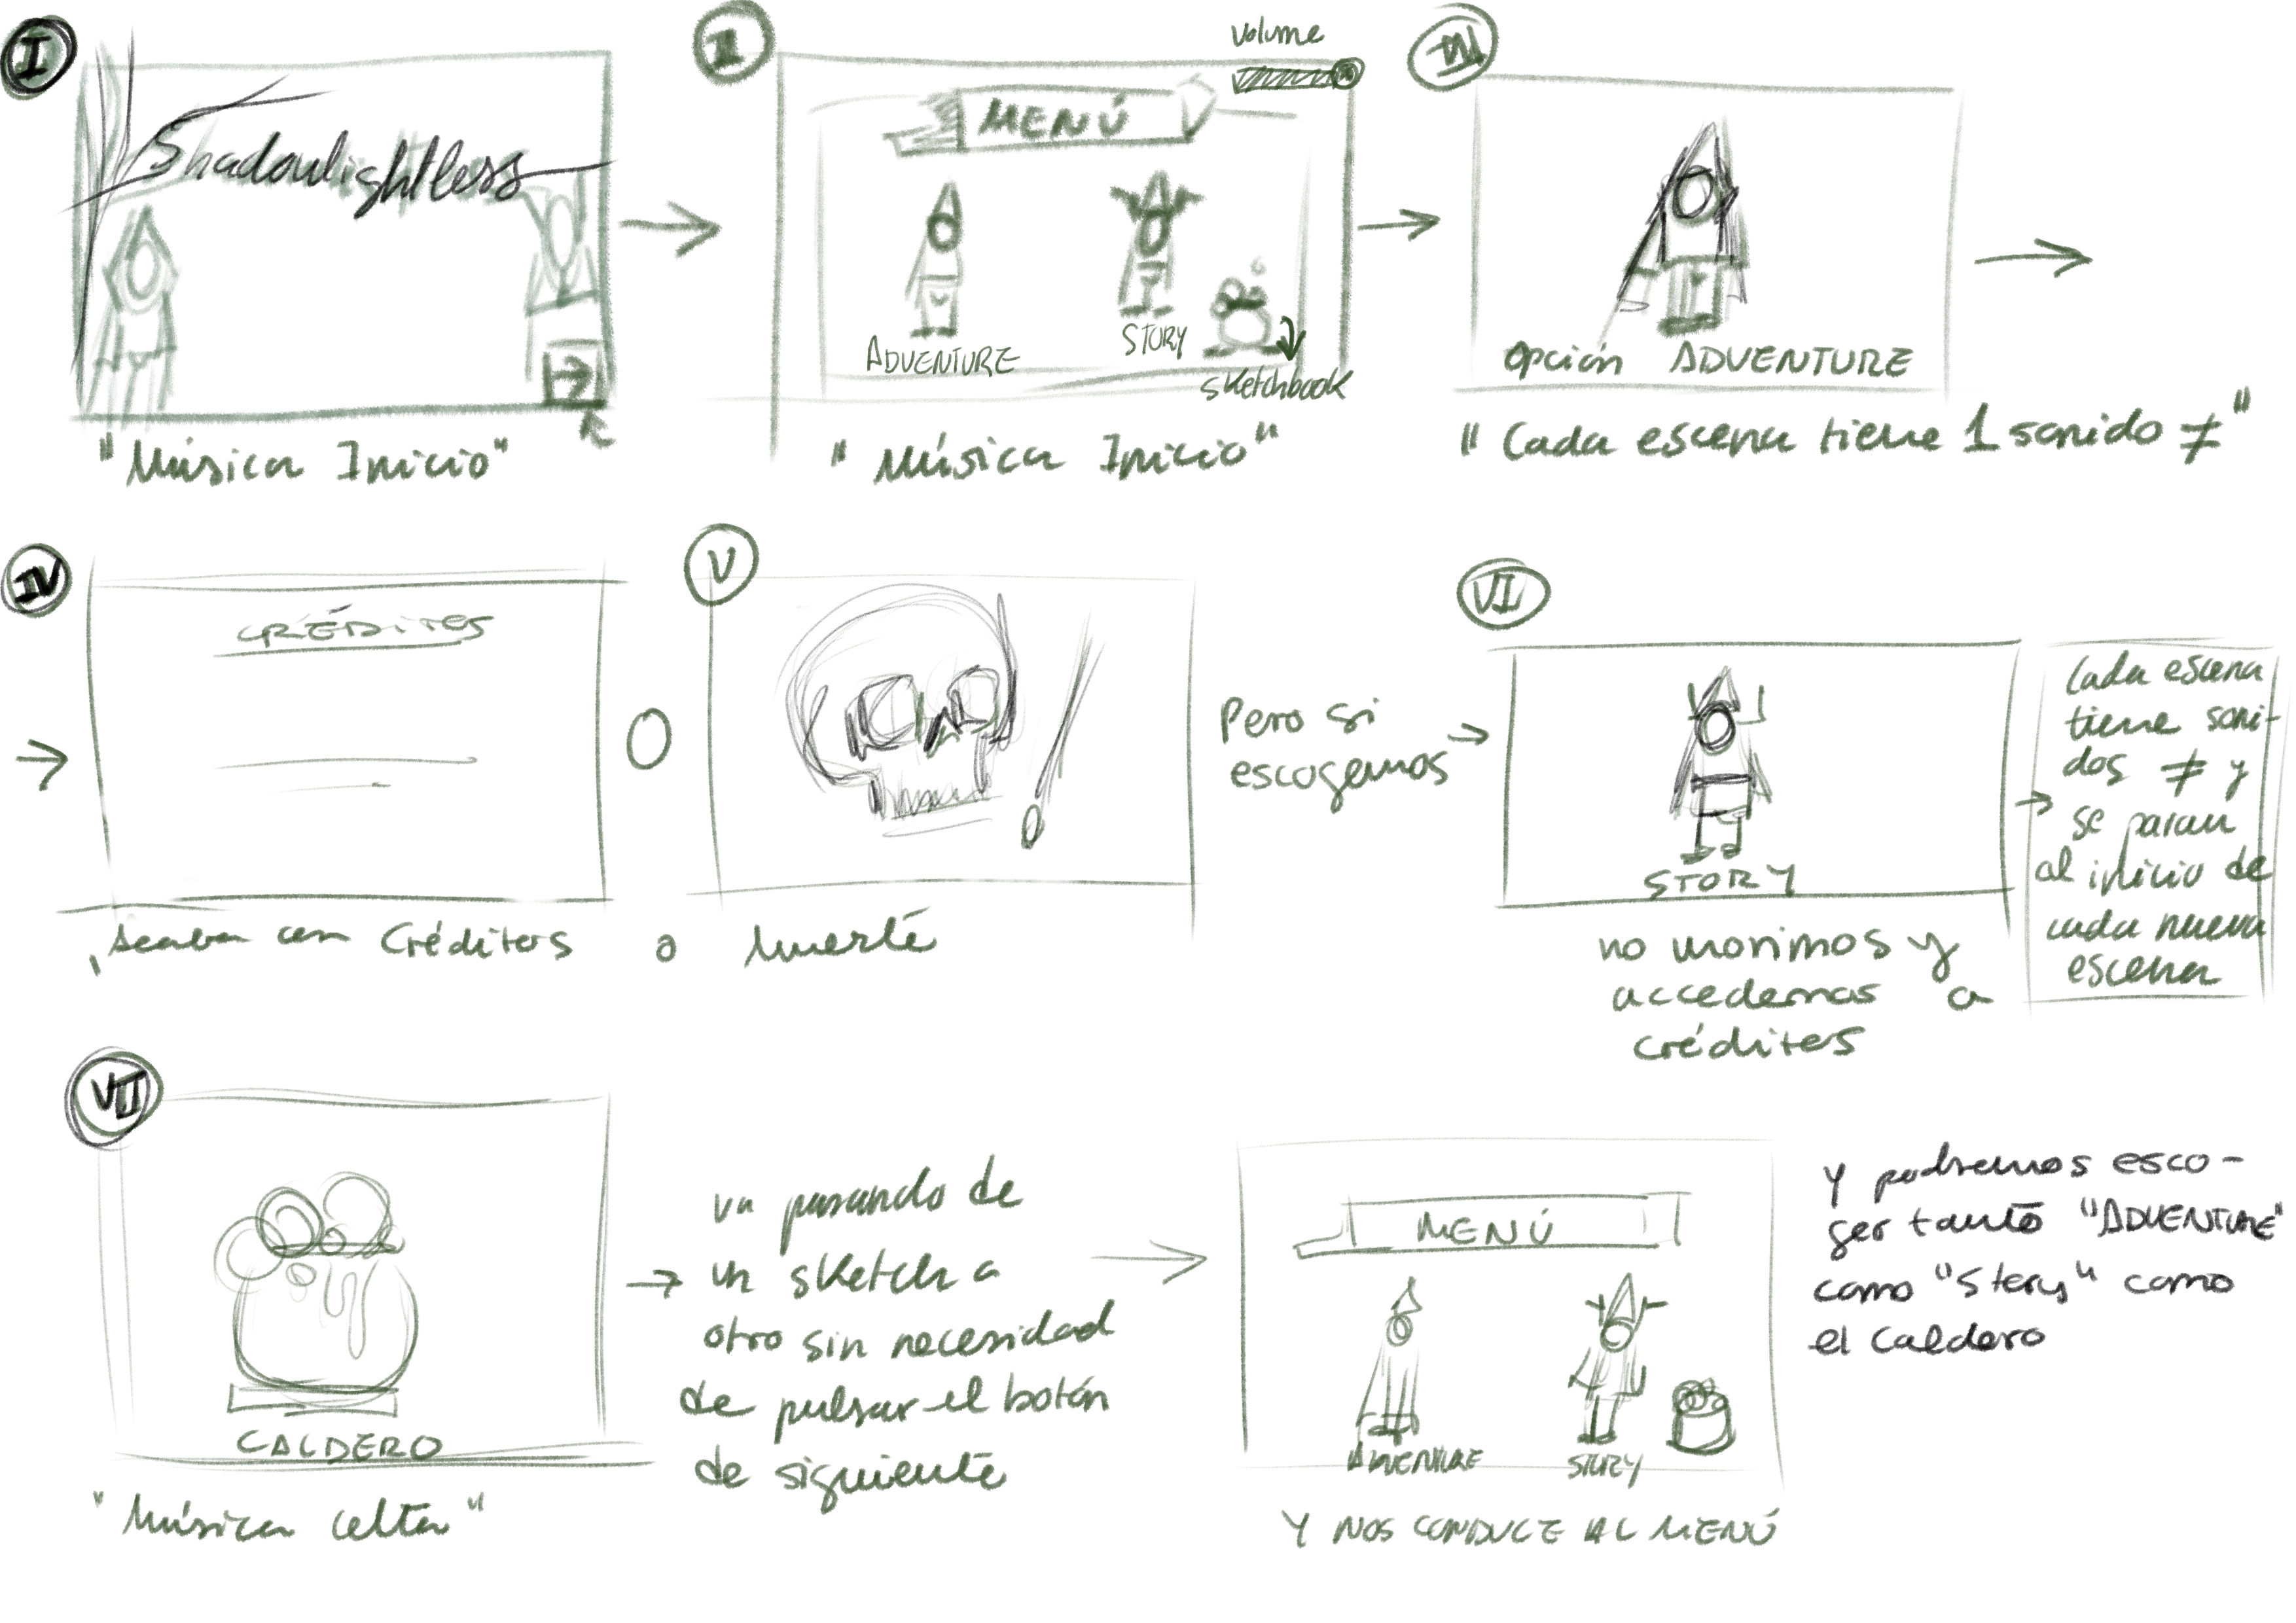 I
Shadowlightless
"Música Inicio"
II
volume
MENÚ
ADVENTURE
STORY
sketchbook
"Música Inicio"
III
Opción ADVENTURE
"Cada escena tiene 1 sonido ≠"
IV
CRÉDITOS
Acaba con Créditos
O
o
V
Muerte
Pero si
escogemos
VI
STORY
no morimos y
accedemos a
créditos
Cada escena
tiene soni-
dos ≠ y
se paran
al inicio de
cada nueva
escena
VII
CALDERO
"Música celta"
va pasando de
un sketch a
otro sin necesidad
de pulsar el botón
de siguiente
MENÚ
ADVENTURE
STORY
Y NOS CONDUCE AL MENÚ
Y podremos esco-
ger tanto "ADVENTURE"
como "Story" como
el caldero